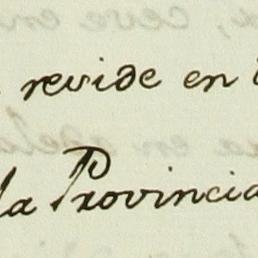 revide en
la Provincia